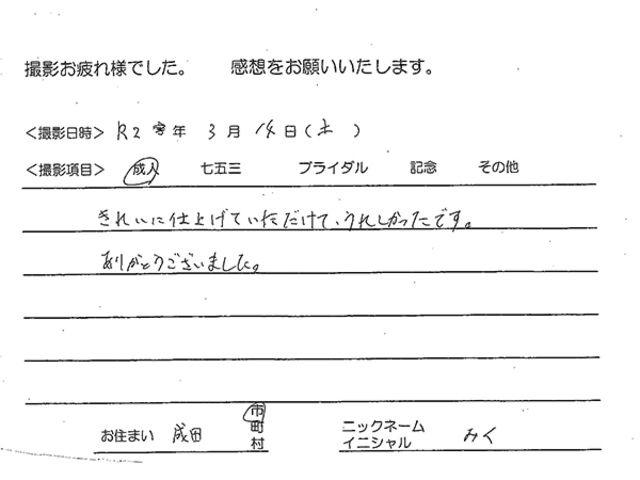 撮影お疲れ様でした。 感想をお願いいたします。
<撮影日時> R2 年 3月 14日(土)
<撮影項目> 成人 七五三 ブライダル 記念 その他
きれいに仕上げていただけて、うれしかったです。
ありがとうございました。
お住まい 成田 市町村 ニックネーム イニシャル みく